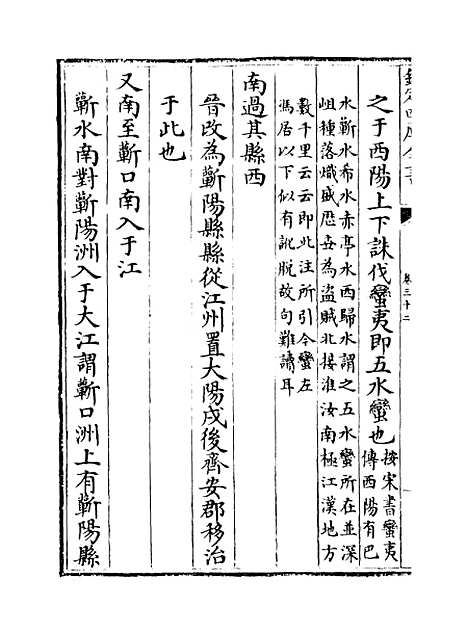 欽定四庫全書
卷三十二
之于西陽上下誅伐蠻夷即五水蠻也按宋書蠻夷
傳西陽有巴
水蘄水希水赤亭水西歸水謂之五水蠻所在並深
岨種落熾盛歷世為盜賊北接淮汝南極江漢地方
數千里云云即此注所引今蠻左
馮居以下似有訛脫故句難讀耳
南過其縣西
晉改為蘄陽縣縣從江州置大陽戍後齊安郡移治
于此也
又南至蘄口南入于江
蘄水南對蘄陽洲入于大江謂蘄口洲上有蘄陽縣